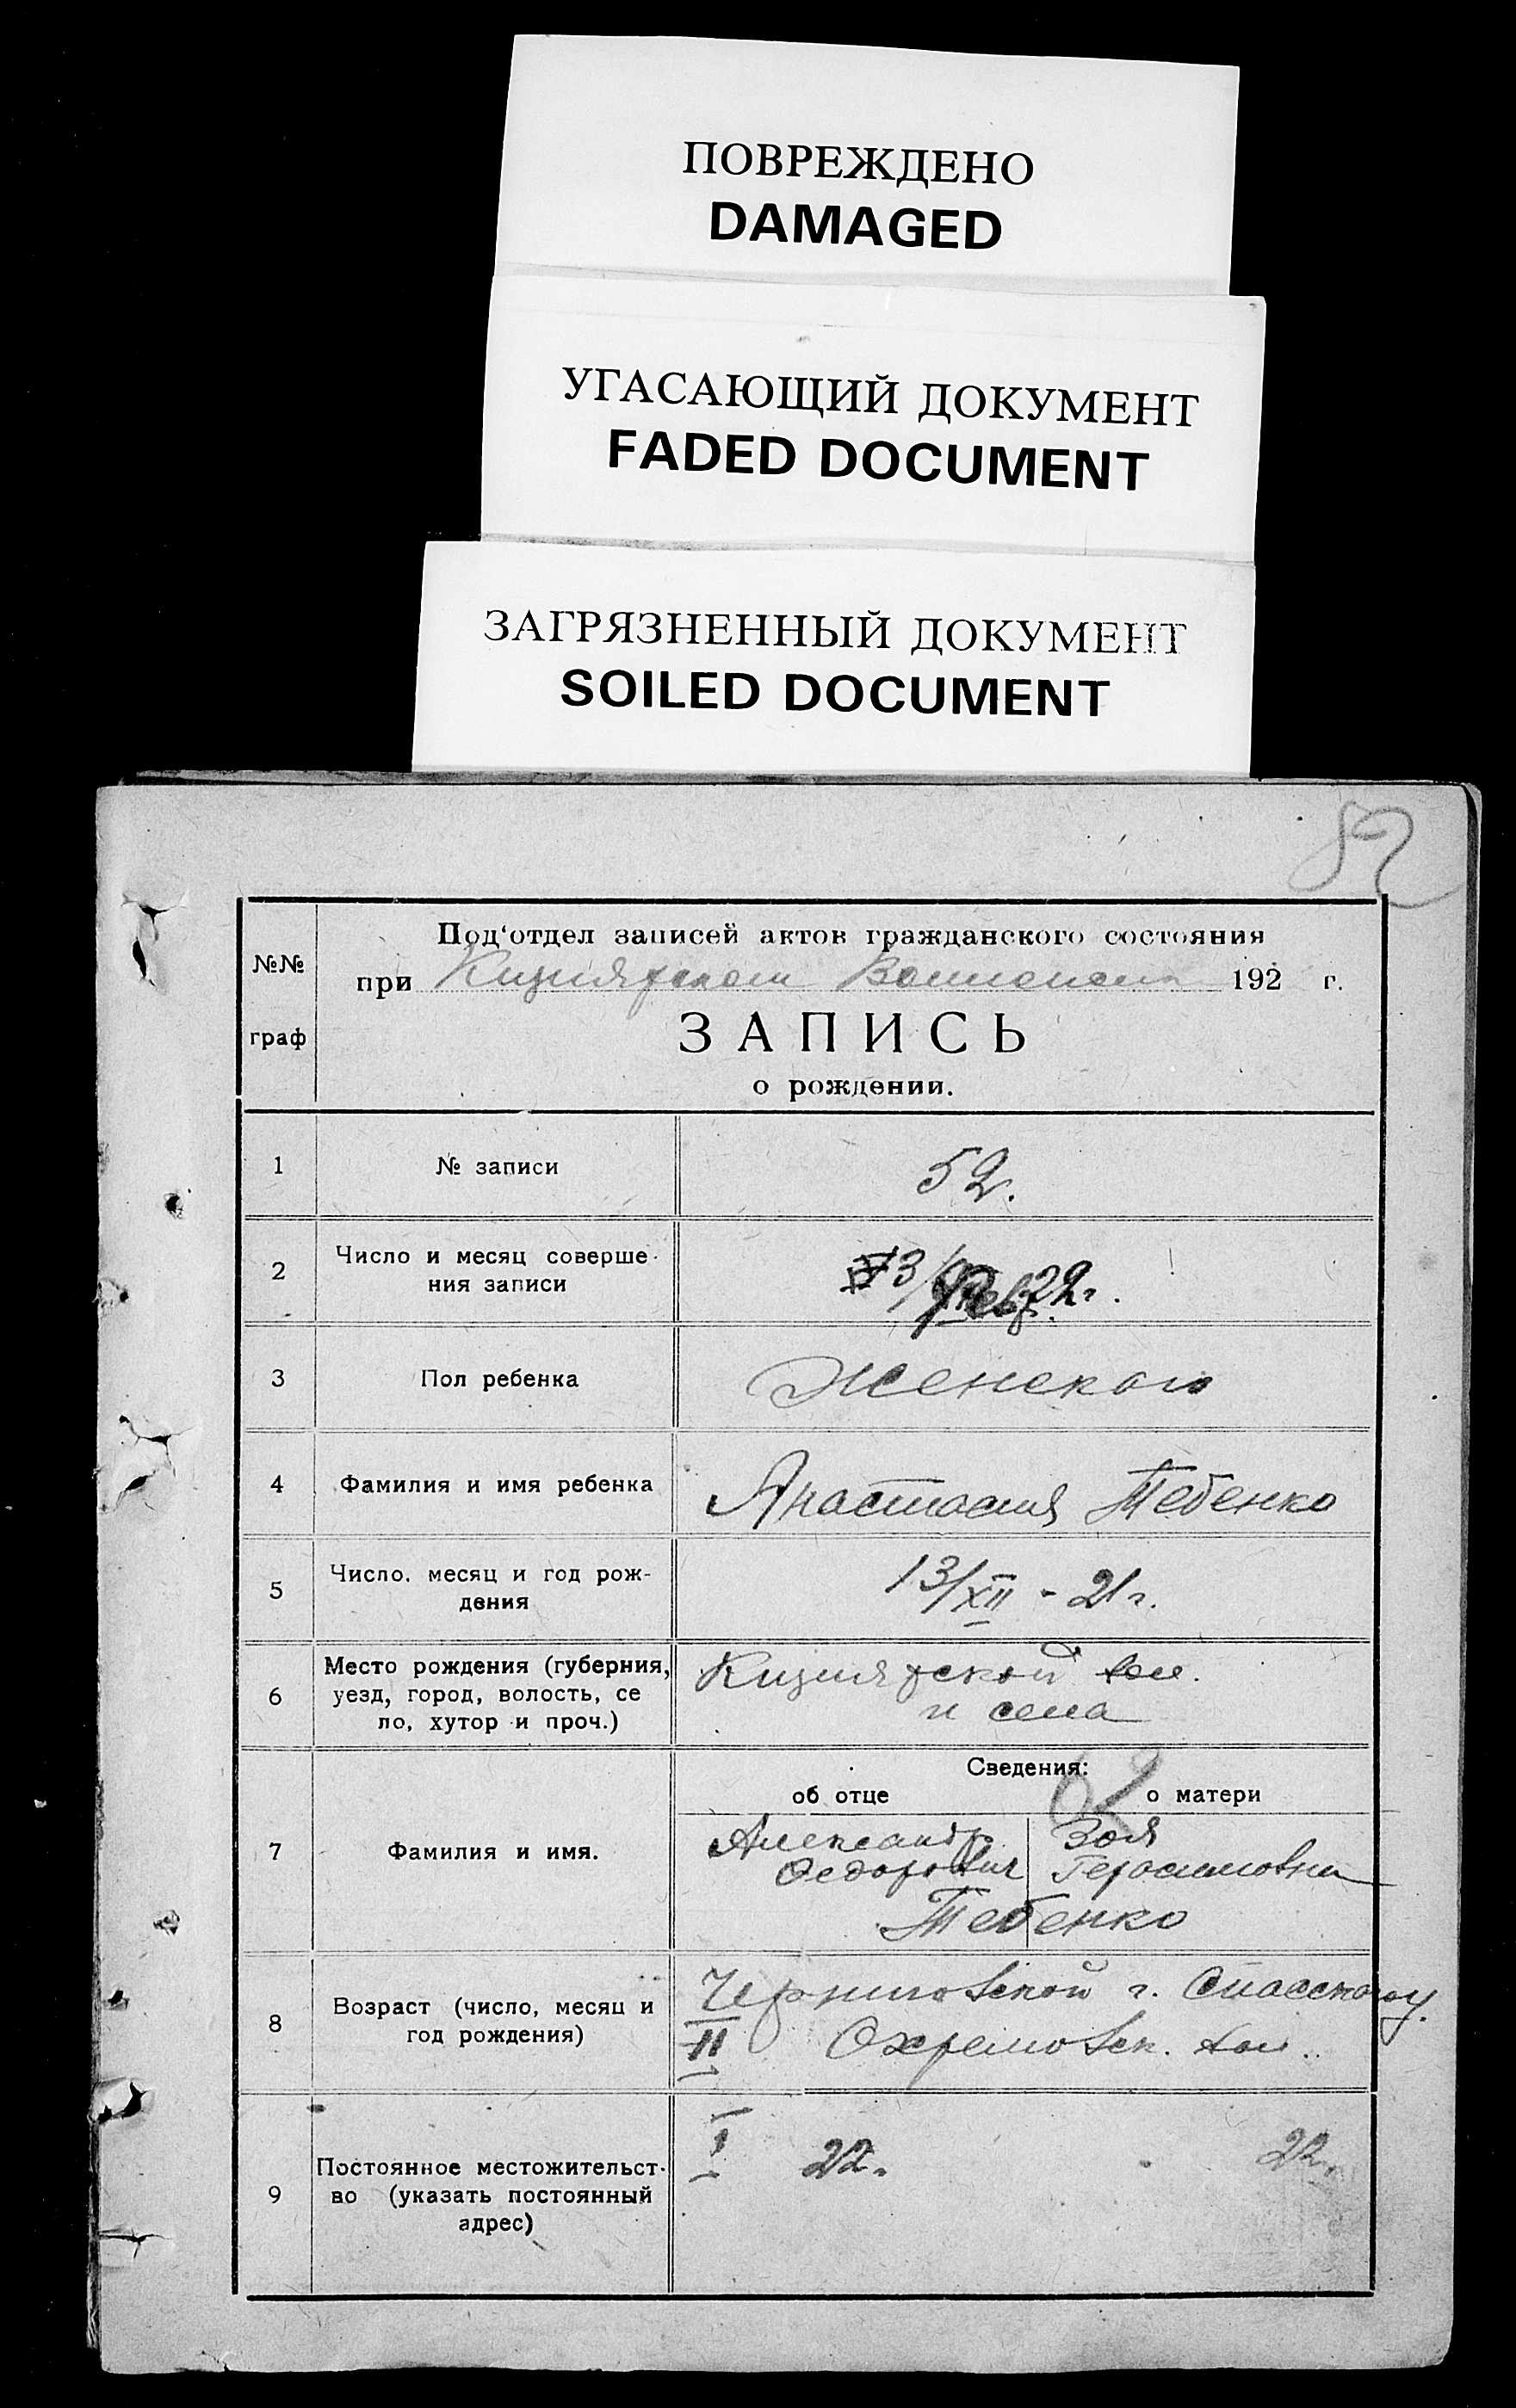 ПОВРЕЖДЕНО
DAMAGED
УГАСАЮЩИЙ ДОКУМЕНТ
FADED DOCUMENT
ЗАГРЯЗНЕННЫЙ ДОКУМЕНТ
SOILED DOCUMENT
52
№№
граф
Под‘отдел записей актов гражданского состояния
при Кизиярском 192 г.
ЗАПИСЬ
о рождении.
1 № записи 52.
2 Число и месяц соверше-
ния записи 22г.
3 Пол ребенка Женского
4 Фамилия и имя ребенка Анастасия Тебенко
5 Число, месяц и год рож-
дения 13/XII - 21 г.
6 Место рождения (губерния,
уезд, город, волость, се
ло, хутор и проч.) Кизиярской вол.
и села
Сведения:
об отце о матери
7 Фамилия и имя.
Александр Зоя
Федорович Герасимовна
Тебенко
8 Возраст (число, месяц и
год рождения)
г. Спасского у.
II Охремовск. вол.
9 Постоянное местожительст-
во (указать постоянный
адрес)
I 22. 22.